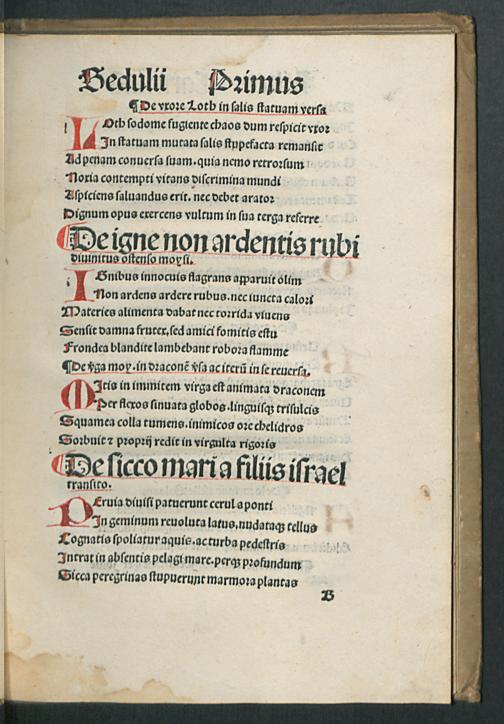 Sedulii Primus
¶De vxore Loth in salis statuam versa
LOth sodome fugiente chaos dum respicit vxor
In statuam mutata salis stypefacta remansit
Ad penam conuersa suam. quia nemo retrorsum
Noxia contempti vitans discrimina mundi
Aspiciens saluandus erit. nec debet arator
Dignum opus exercens vultum in sua terga referre
¶De igne non ardentis rubi
diuinitus ostenso moysi.
IGnibus innocuis flagrans apparuit olim
Non ardens ardere rubus. nec iuncta calori
Materies alimenta dabat nec torrida viuens
Sensit damna frutex. sed amici fomitis estu
Frondea blandite lambebant robora flamme
¶De v̄ga moy. in draconē v̄sa ac iterū in se reuersa.
MItis in immitem virga est animata draconem
Per flexos sinuata globos. linguisqȝ trisulcis
Squamea colla tumens. inimicos ore chelidros
Sorbuit ⁊ proprij redit in virgulta rigoris
¶De sicco mari a filiis israel
transito.
PEruia diuisi patuerunt cerula ponti
In geminum reuoluta latus. nudataqȝ tellus
Cognatis spoliatur aquis. ac turba pedestris
Intrat in absentis pelagi mare. perqȝ profundum
Sicca peregrinas stupuerunt marmora plantas
B